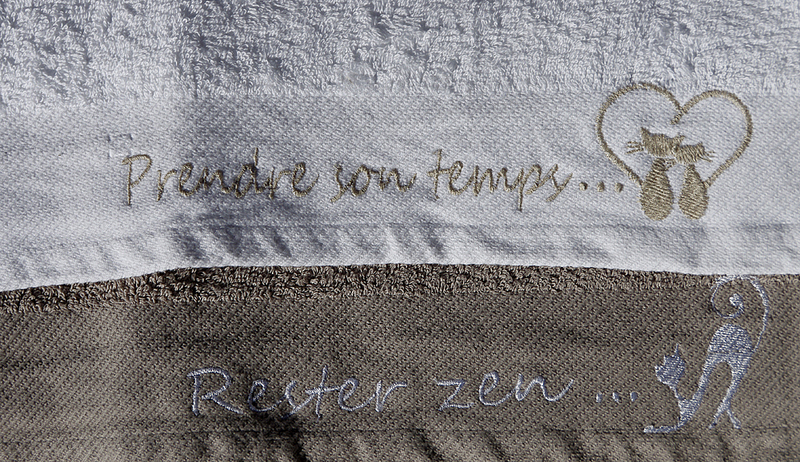 Prendre son temps...
Rester zen ...